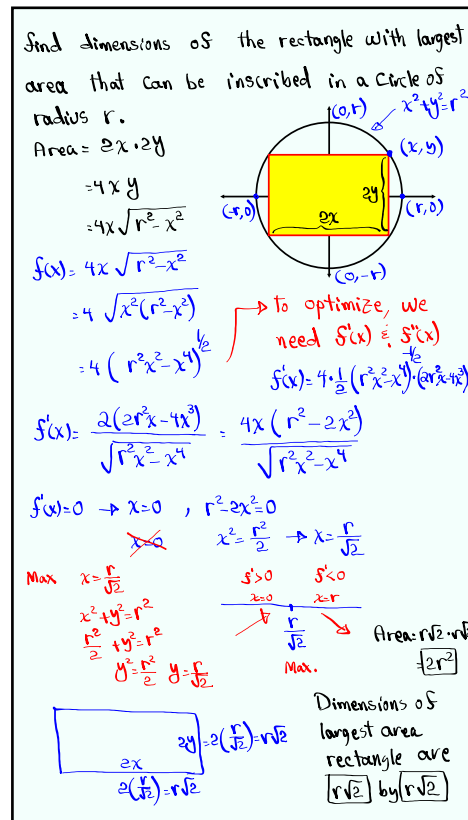 find dimensions of the rectangle with largest
area that can be inscribed in a circle of
radius r.
x²+y²=r²
(0,r)
(x,y)
(-r,0)
(r,0)
(0,-r)
2x
2y
Area = 2x·2y
=4xy
=4x√(r²-x²)
f(x)= 4x√(r²-x²)
=4 √(x²(r²-x²))
=4 (r²x²-x⁴)^(1/2)
→ to optimize, we
need f'(x) & f"(x)
f'(x)=4·1/2 (r²x²-x⁴)^(-1/2)·(2r²x-4x³)
f'(x)= 2(2r²x-4x³)/√(r²x²-x⁴) = 4x(r²-2x²)/√(r²x²-x⁴)
f'(x)=0 → x=0 , r²-2x²=0
x=0 x²=r²/2 → x=r/√2
Max x=r/√2
x²+y²=r²
r²/2+y²=r²
y²=r²/2 y=r/√2
f'>0 f'<0
x=0 x=r
r/√2
Max.
Area=r√2·r√2
=2r²
2y=2(r/√2)=r√2
2x
2(r/√2)=r√2
Dimensions of
largest area
rectangle are
r√2 by r√2